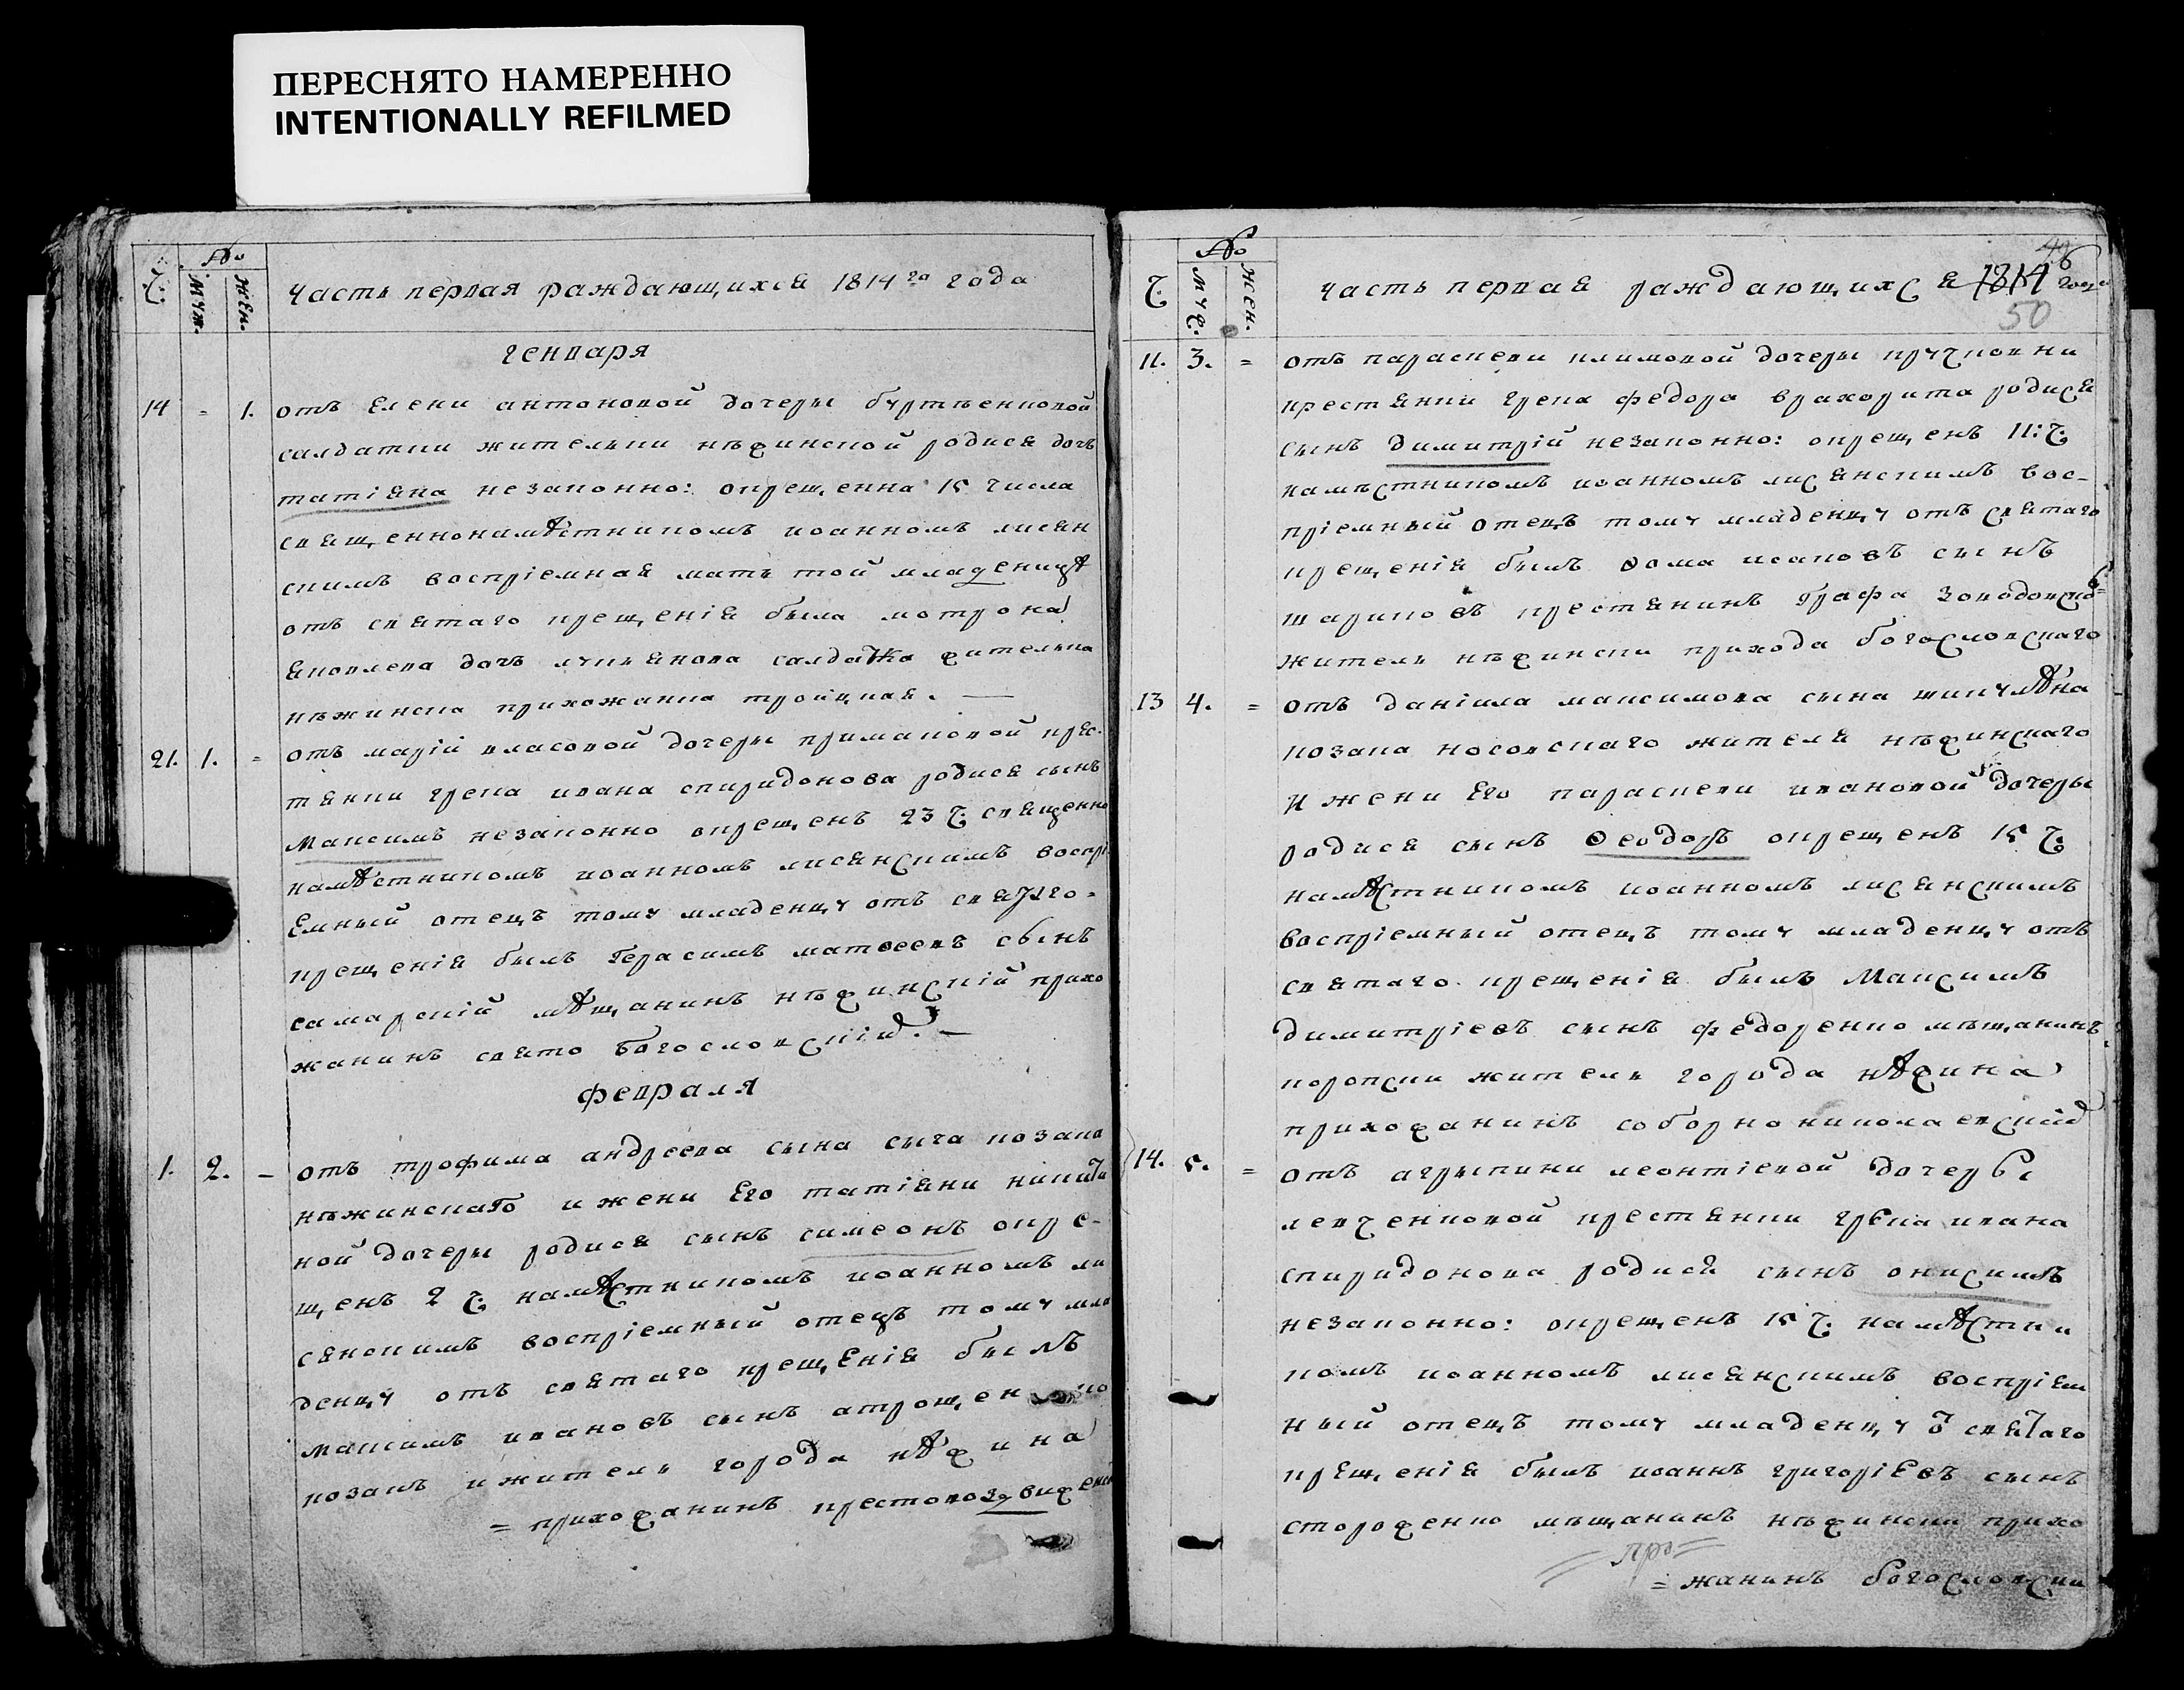 ПЕРЕСНЯТО НАМЕРЕННО
INTENTIONALLY REFILMED
Ч. № муж. жен.
часть первая раждающихся 1814го года
генваря
14 = 1. отъ Елени антоновой дочеры
салдатки жителки нѣжинской родися дочъ
татіяна незаконно: окрещенна 15 числа
священнонамѣстникомъ иоанномъ лисян
скимъ воспріемная мать той младеницѣ
отъ святаго крещенія была мотрона
яковлева дочъ лукянова салдатка жителка
нѣжинска прихожанка тройцкая. —
21. 1. = отъ марій власовой дочеры примаковой крес-
тянки грека ивана спиридонова родися сынъ
Максимъ незаконно окрещенъ 23 ч. священно
намѣстникомъ иоанномъ лисянскимъ воспрі
Емный отецъ тому младенцу отъ святаго =
крещенія былъ Герасимъ матвеевъ сынъ
самарскій мѣщанинъ нѣжинскій прихо
жанинъ свято богословскій. —
февраля
1. 2. – отъ трофима андреева сына сыча козака
нѣжинскаго и жени Его татіяни никити
ной дочеры родися сынъ симеонъ окре-
щенъ 2 ч. намѣстникомъ иоанномъ ли
сянскимъ воспріемный отецъ тому мла
денцу отъ святаго крещенія былъ
максимъ ивановъ сынъ
козакъ и житель города нѣжина
= прихожанинъ крестовоздвижен
Ч. № муж. жен.
часть первая раждающихся 1814 года
46
50
11. 3. = отъ параскеви климовой дочеры
крестянки грека федора родися
сынъ димитрій незаконно: окрещенъ 11: ч.
намѣстникомъ иоанномъ лисянскимъ вос-
пріемный отецъ тому младенцу отъ святаго
крещенія былъ ѳома исаковъ сынъ
шариповъ крестянинъ графа
житель нѣжински прихода богословскаго
13 4. = отъ даніила максимова сына
козака носовскаго жителя нѣжинскаго
и жени Его параскеви ивановой дочеры
родися сынъ Ѳеодоръ окрещенъ 15 ч.
намѣстникомъ иоанномъ лисянскимъ
воспріемный отецъ тому младенцу отъ
святаго крещенія былъ Максимъ
димитріевъ сынъ федоренко мѣщанинъ
коропски житель города нѣжина
прихожанинъ соборно николаевскій
14. 5. = отъ агрыпини леонтіевой дочеры
левченковой крестянки грека ивана
спиридонова родися сынъ онисимъ
незаконно: окрещенъ 15 ч. намѣстни
комъ иоанномъ лисянскимъ воспріем
ный отецъ тому младенцу ѿ святаго
крещенія былъ иоаннъ григоріевъ сынъ
стороженко мѣщанинъ нѣжински прихо
= жанинъ богословски